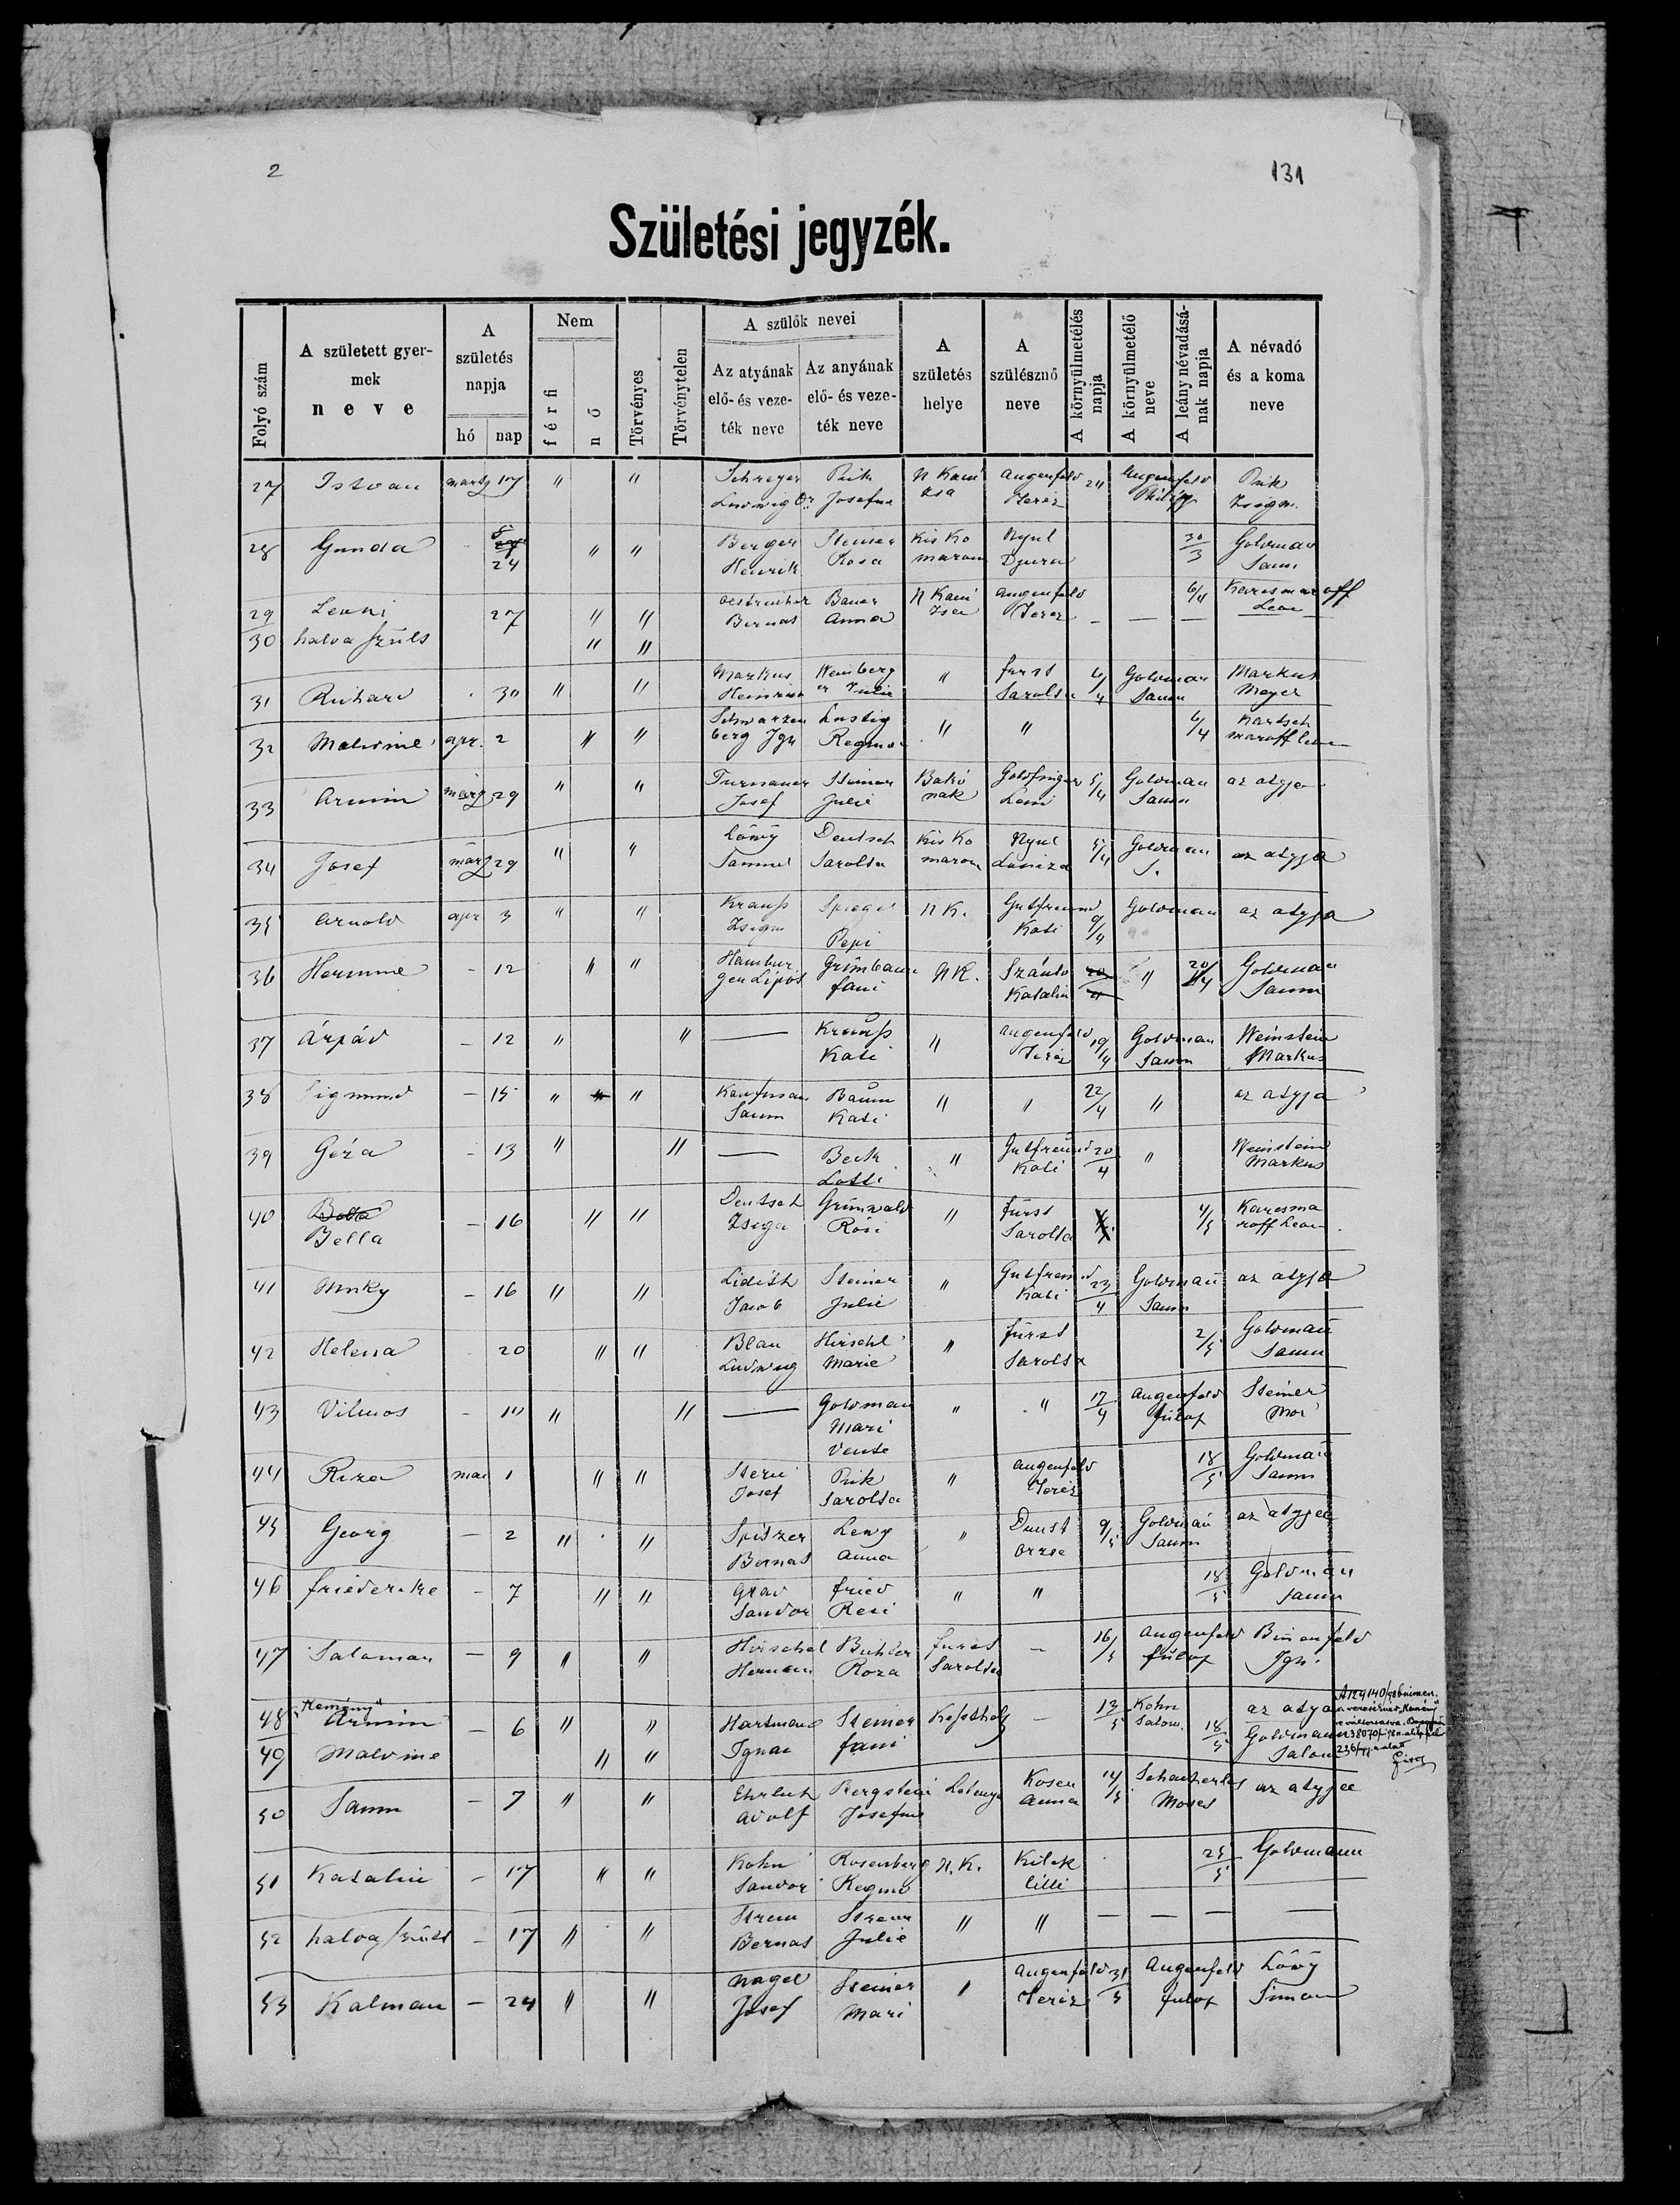 2
131
Születési jegyzék.
Folyó szám
A született gyermek neve
A születés napja
hó nap
Nem
férfi
nő
Törvényes
Törvénytelen
A szülők nevei
Az atyának elő- és vezeték neve
Az anyának elő- és vezeték neve
A születés helye
A szülésznő neve
A környülmetélés napja
A környülmetélő neve
A leány névadásának napja
A névadó és a koma neve
27 Istvan martz 17 " " Schreyer Ludwig Dr. Josefne N Kani zsa Augenfeld Terez 24 Augenfeld Philipp Zsigm.
28 Gunda - 24 " " Berger Henrik Steiner Rosa Kis Ko marom Nyul 30/3 Goldman Samu
29 Leoni 27 " " Bernat Bauer Anna N Kani zsa Augenfeld Terez 6/4 Karesmaroff Leon
30 halva szüls " "
31 Richard 30 " " Markus Heinrich Weinberg er Julie " Fürst Sarolta 6/4 Goldman Samu Markus Mayer
32 Malvine apr. 2 " " Schwarzen berg Ign Lustig Regina " " 6/4
33 Armin märz 29 " " Turnauer Josef Steiner Julie Bakó nak Goldfinger Leni 5/4 Goldman Samu az atyja
34 Josef märz 29 " " Löwy Samuel Deutsch Sarolta Kis Ko marom Nyul 5/4 Goldman S. az atyja
35 Arnold apr 3 " " Krauß Zsigm Spiegel Pepi N K. Gutfreund Kati 9/4 Goldman az atyja
36 Hermine - 12 " " Hambur ger Lipot Grünbaum Fani N K. Szántó Katalin 20/4 " 20/4 Goldman Samu
37 Árpád - 12 " " — Krauß Kati " Augenfeld Terez 19/4 Goldman Samu Weinstein Markus
38 Sigmund - 15 " " Kaufman Samu Baum Kati " " 22/4 " az atyja
39 Géza - 13 " " — Beck Lotti " Gutfreund Kati 20/4 " Weinstein Markus
40 Bella Bella - 16 " " Deutsch Zsiga Grünwald Rosi " Fürst Sarolta 4/5 Karesma roff Leon
41 Miksy - 16 " " Jacob Steiner Julie " Gutfreund Kati 23/4 Goldman Samu az atyja
42 Helena 20 " " Blau Ludwig Hirschl Marie " Fürst Sarolta 2/5 Goldman Samu
43 Vilmos - 10 " " — Goldman Mari " " 17/4 Augenfeld Fülop Steiner Mor
44 Riza mai 1 " " Stern Josef Sarolta " Augenfeld Terez 18/5 Goldman Samu
45 Georg - 2 " " Spitzer Bernat Lewy Anna " Orzse 9/5 Goldman Samu az atyja
46 Friederike - 7 " " Sandor Fried Resi " " 18/5 Goldman Samu
47 Salaman - 9 " " Hirschel Herman Roza Fürst Sarolta — 16/5 Augenfeld Fülop Binenfeld Ign.
48 "Kemény" Armin - 6 " " Hartmann Ignac Steiner Fani Keszthely — 13/5 Kohn Salom. az atya
49 Malvine " " 18/5 Goldmann Salom
50 Samu - 7 " " Ehrlich Adolf Bergstein Josefine Letenye Kosen Anna 14/5 Moses az atyja
51 Katalin - 17 " " Kohn Sandor Rosenberg Regine N. K. Lilli 25/5 Goldmann
52 halva szüls - 17 " " Strem Bernat Julie " " — — — —
53 Kalman - 24 " " Nagel Josef Steiner Mari " Augenfeld Terez 31/5 Augenfeld Fulop Löwy Simon